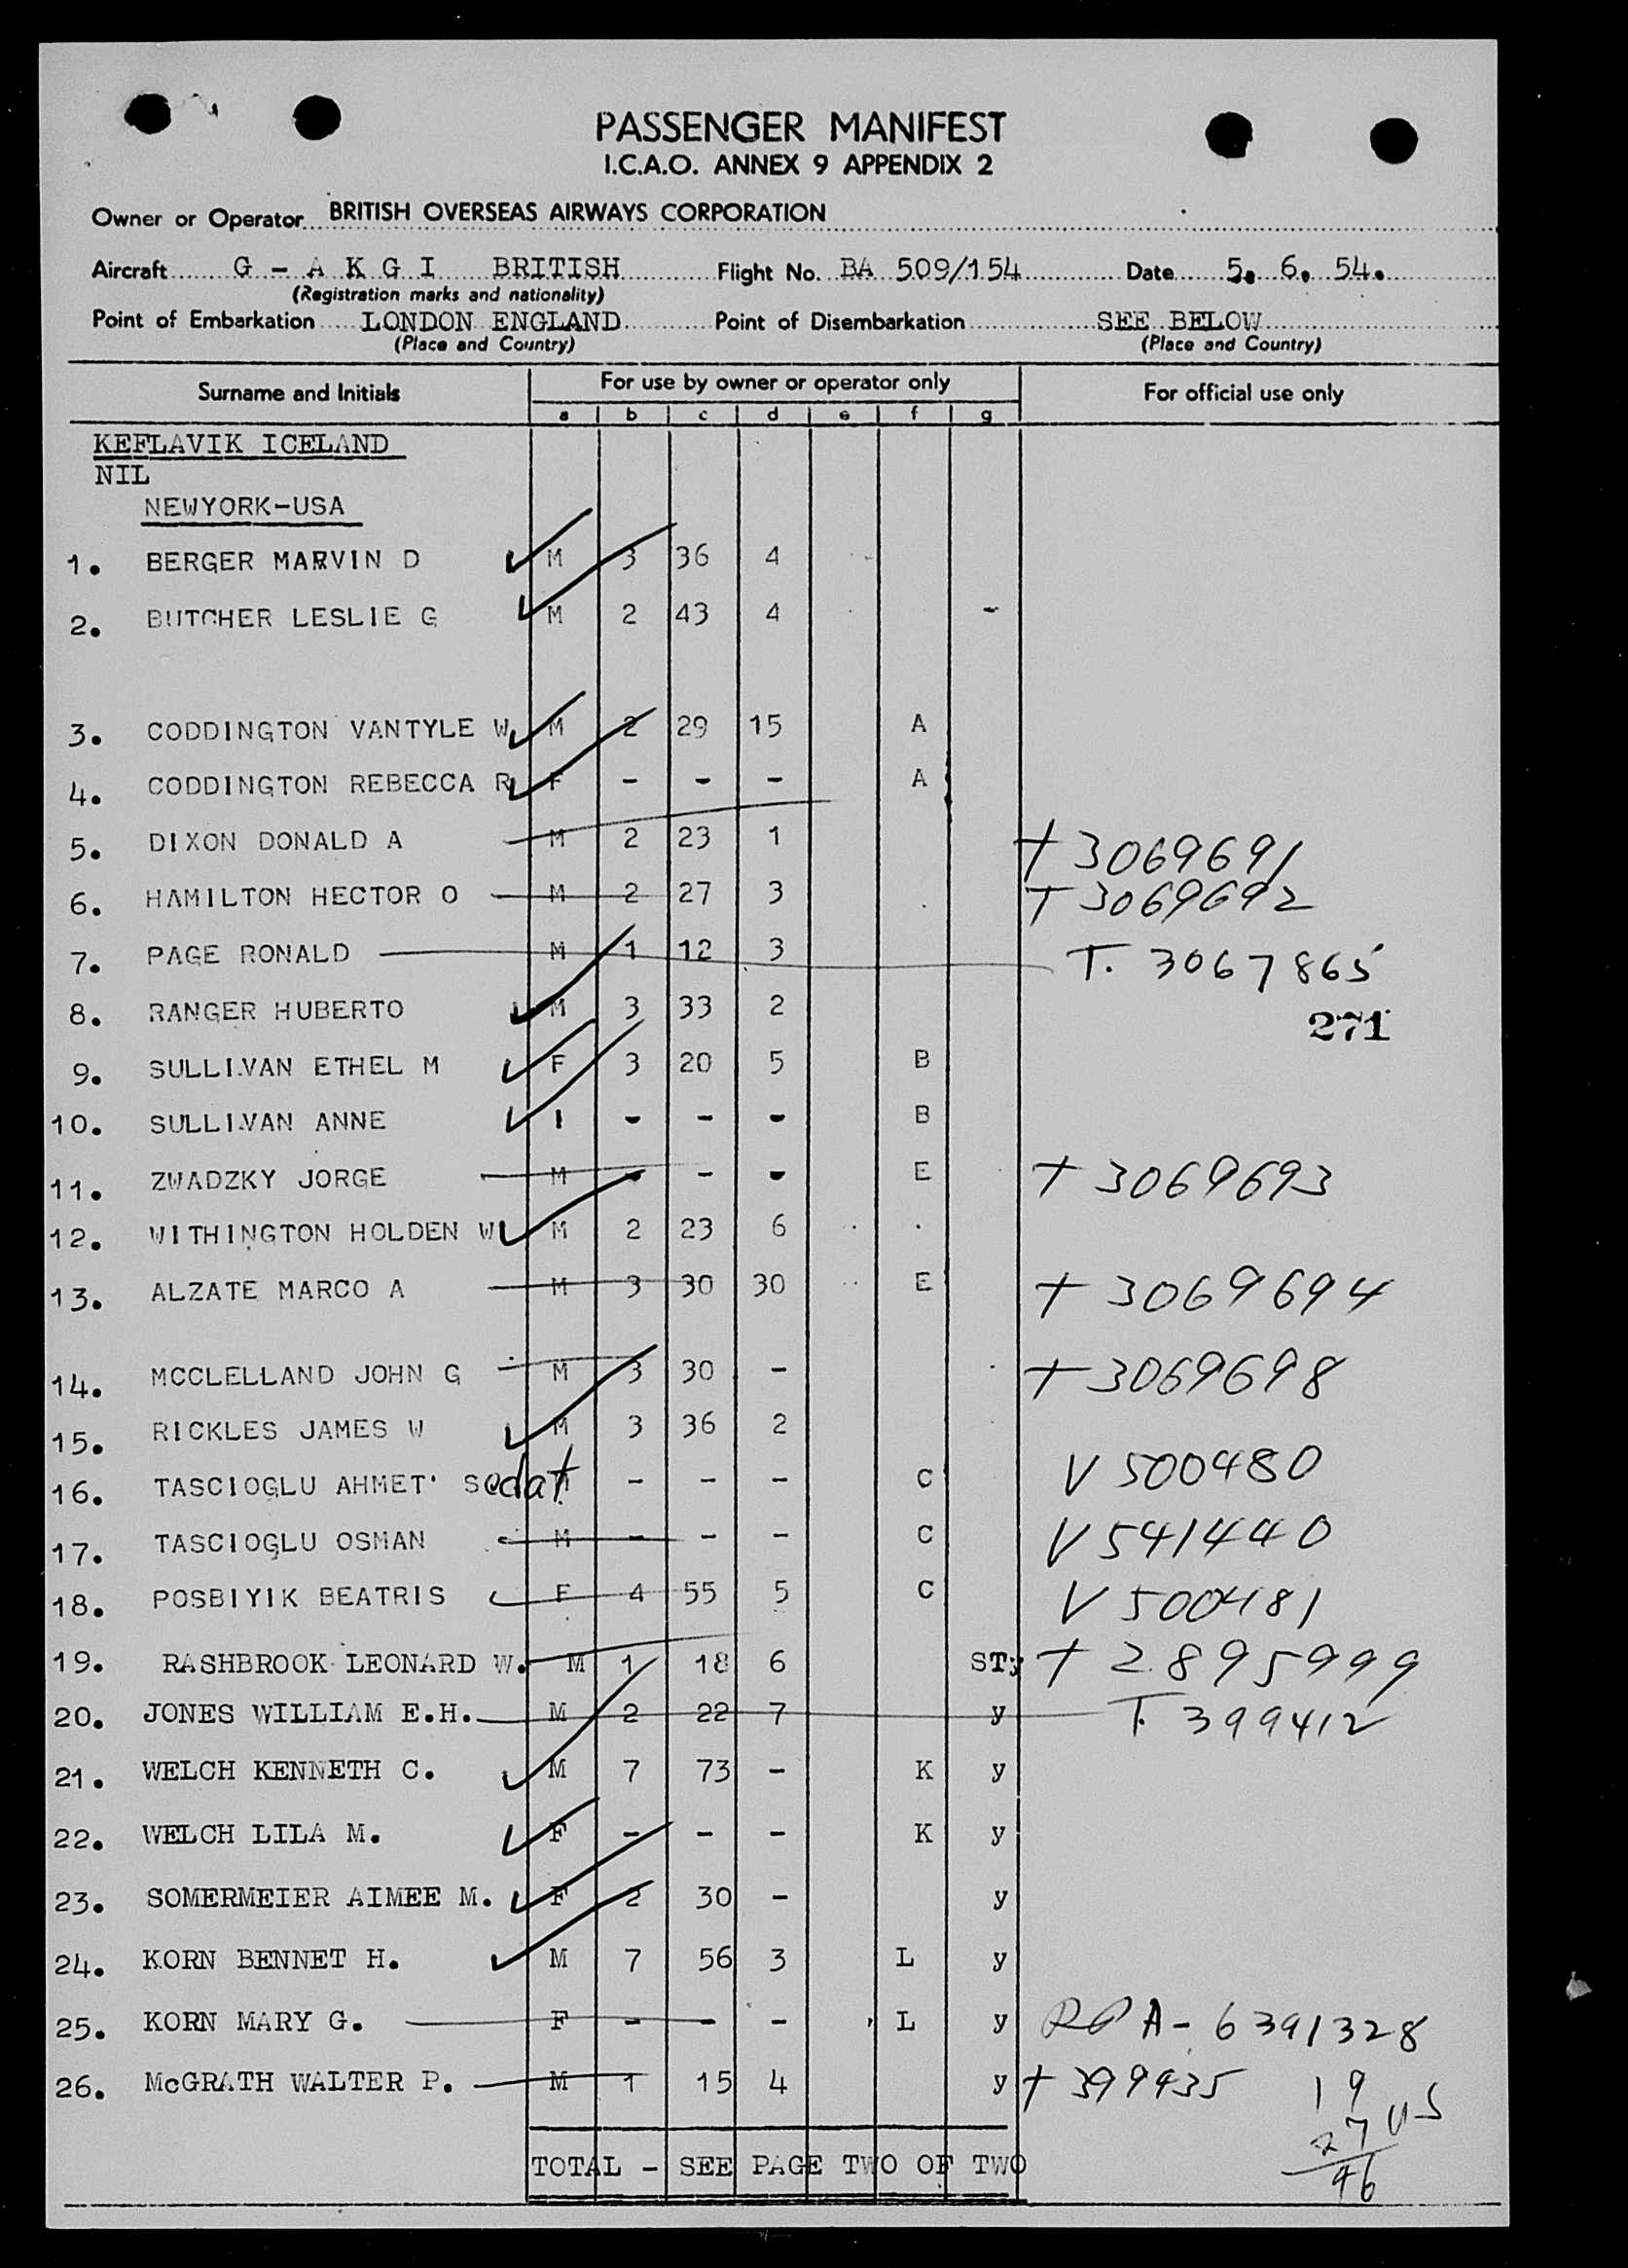 PASSENGER MANIFEST
I.C.A.O. ANNEX 9 APPENDIX 2
Owner or Operator BRITISH OVERSEAS AIRWAYS CORPORATION
Aircraft G - A K G I BRITISH Flight No. BA 509/154 Date 5. 6. 54.
(Registration marks and nationality)
Point of Embarkation LONDON ENGLAND Point of Disembarkation SEE BELOW
(Place and Country) (Place and Country)
Surname and Initials For use by owner or operator only For official use only
a b c d e f g
KEFLAVIK ICELAND
NIL
NEWYORK-USA
1. BERGER MARVIN D M 3 36 4
2. BUTCHER LESLIE G M 2 43 4 -
3. CODDINGTON VANTYLE W M 2 29 15 A
4. CODDINGTON REBECCA R F - - - A
5. DIXON DONALD A M 2 23 1 T 3069691
6. HAMILTON HECTOR O M 2 27 3 T 3069692
7. PAGE RONALD M 1 12 3 T. 3067865
8. RANGER HUBERTO M 3 33 2
271
9. SULLIVAN ETHEL M F 3 20 5 B
10. SULLIVAN ANNE I - - - B
11. ZWADZKY JORGE M - - - E T 3069693
12. WITHINGTON HOLDEN W M 2 23 6
13. ALZATE MARCO A M 3 30 30 E T 3069694
14. MCCLELLAND JOHN G M 3 30 - T 3069698
15. RICKLES JAMES W M 3 36 2
16. TASCIOGLU AHMET Sedat - - - C V 500480
17. TASCIOGLU OSMAN M - - - C V 541440
18. POSBIYIK BEATRIS F 4 55 5 C V 500481
19. RASHBROOK LEONARD W. M 1 18 6 STy T 2895999
20. JONES WILLIAM E.H. M 2 22 7 y T. 399412
21. WELCH KENNETH C. M 7 73 - K y
22. WELCH LILA M. F - - - K y
23. SOMERMEIER AIMEE M. F 2 30 - y
24. KORN BENNET H. M 7 56 3 L y
25. KORN MARY G. F - - - L y A-6391328
26. McGRATH WALTER P. M 1 15 4 y T 399935
19
27 US
46
TOTAL - SEE PAGE TWO OF TWO